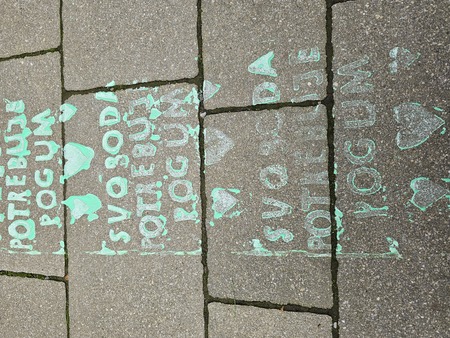 POTREBUJE
POGUM
SVOBODA
POTREBUJE
POGUM
SVOBODA
POTREBUJE
POGUM